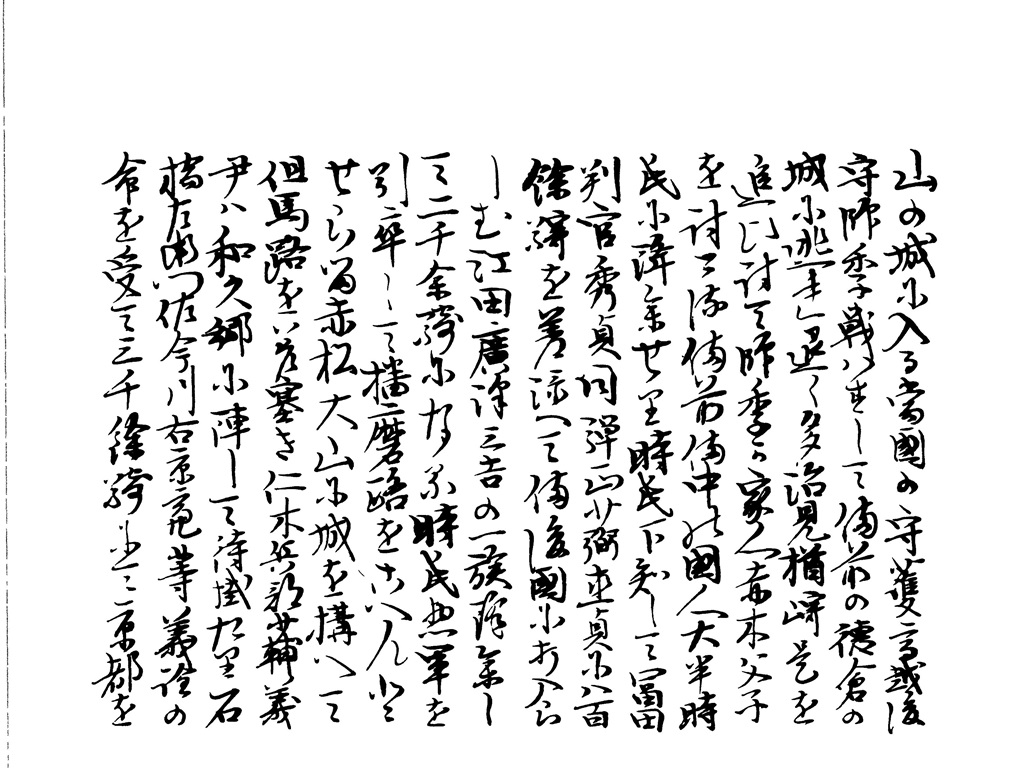 山の城に入る當國の守護高越後
守師季戦はすして備前の徳倉の
城に逃去し退く多治見楢﨑是を
追打討て師季か家人赤木父子
を討てる備前備中の國人大半時
民に降参せり時民下知して冨田
判官秀貞同弾正少弼直貞に八百
餘騎を差添へて備後國に打入ら
しむ江田廣沢三吉の一族降参し
て二千余騎になる時民此軍を
引率して播磨路を入んと
せらる赤松大山に城を構へて
但馬路を差塞き仁木兵部少輔義
尹ハ和久郷に陣して待掛たり石
橋左衛門佐今川右京亮等義詮の
命を受て三千餘騎にて京都を